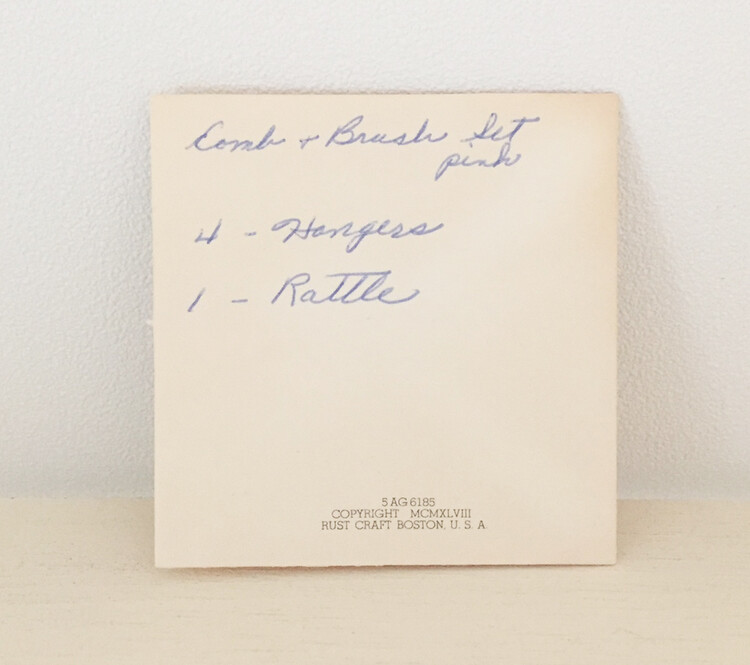 Comb + Brush Set
pink
4 - Hangers
1 - Rattle
5 AG 6185
COPYRIGHT MCMXLVIII
RUST CRAFT BOSTON, U. S. A.